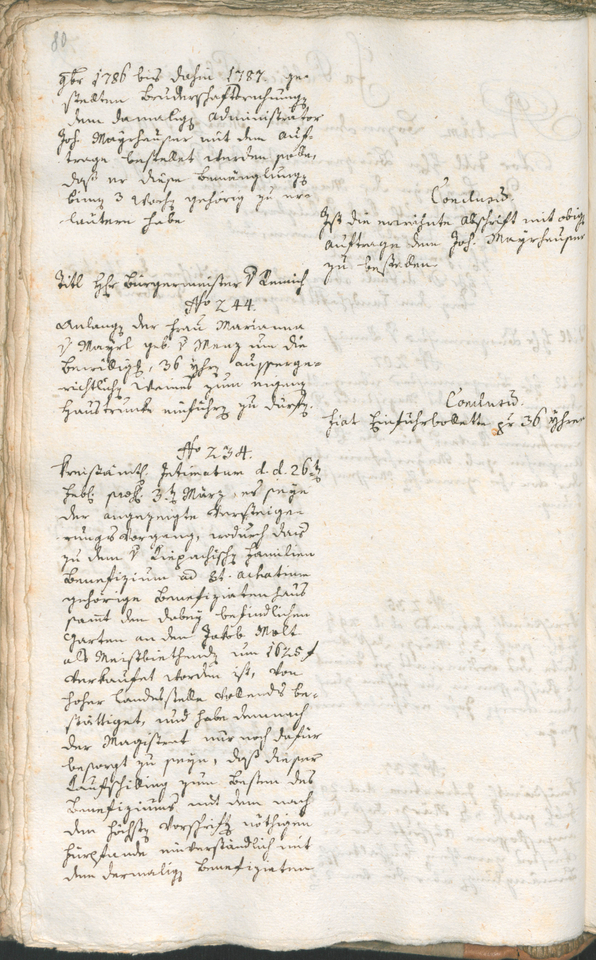 80
9br 1786 bis dahin 1787. ge-
stellten Bruderschaftsrechnung
dem damalig Administrator
Joh. Mayrhauser mit dem Auf-
trage bestellet werden solle,
daß er diese Bemänglung
binn 3 Woch gehörig zu er-
läutern habe.
Conclusum.
Ist die erwehnte Abschrift mit obig
Auftrage dem Joh. Mayrhauser
zu
Titl Hr Bürgermeister v Remich
No 244.
Anlangen der Frau Marianna
v Mayrl geb. v Menz um die
Bewilligung, 36 Yhrn aussperge-
richtlich Weines zum eigen
Haustrunke einführ zu dürfen.
Conclusum.
Fiat Einfuhrbollette pr 36 Yhren
No 234.
Kreisämtl. Intimatum d. d. 26t
Febr. prs. 3t März, es seye
der angezeigte Versteige-
rungsvorgang, wodurch das
zu dem v Kiepachisch Familien
Benefizium ad St.
gehörige Benefiziatenhaus
samt dem dabey befindlichen
Garten an den Jakob Molt
als Meistbiethend um 1625 f
verkaufet worden ist, von
hoher Landesstelle vollends be-
stättiget, und habe demnach
der Magistrat nur noch dafür
besorgt zu seyn, daß dieser
Kaufschilling zum Besten des
Benefiziums mit dem nach
den höchst Vorschrift nöthigen
Fürpfande einverständlich mit
dem dermalig Benefiziaten